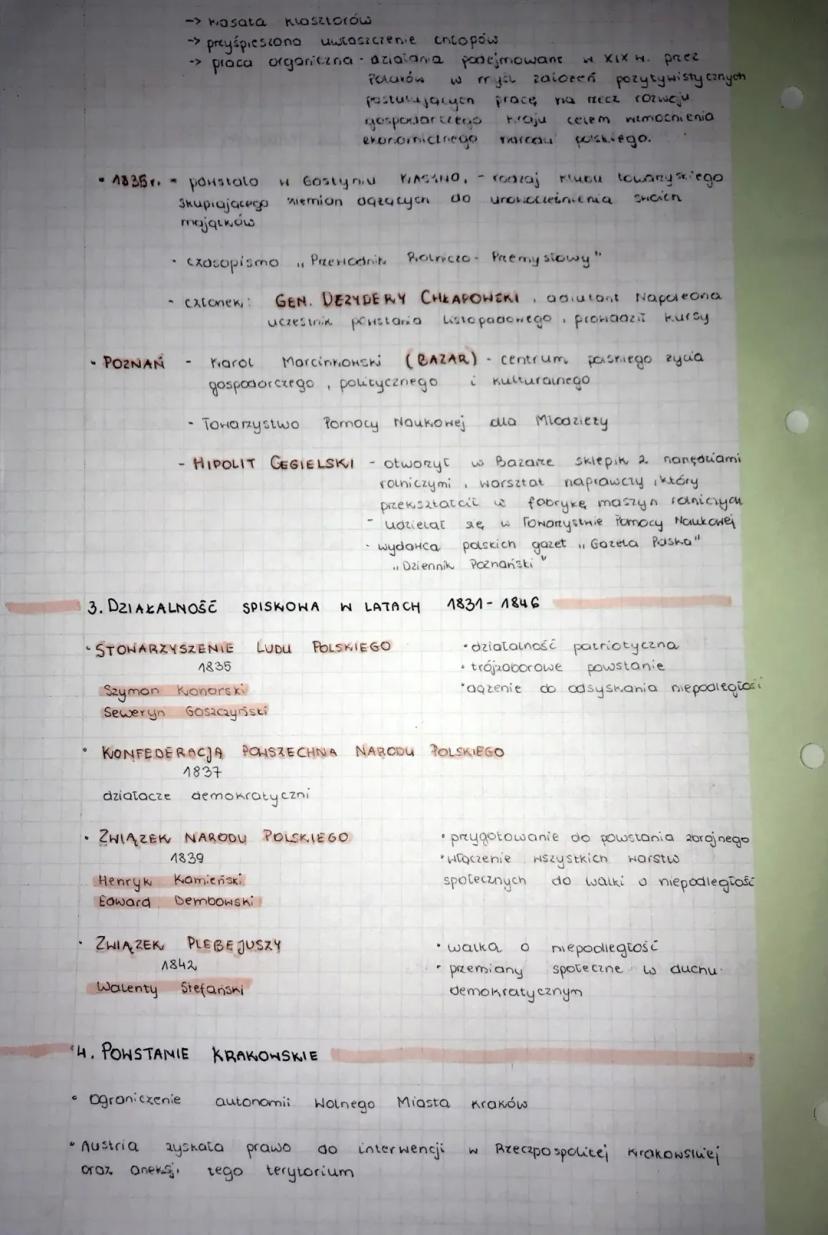 -> kasata klasztorów
-> przyśpieszono uwłaszczenie chłopów
-> praca organiczna - działania podejmowane w XIX w. przez
Polaków w myśl założeń pozytywistycznych
postulujących pracę na rzecz rozwoju
gospodarczego kraju celem wzmocnienia
ekonomicznego narodu polskiego.
• 1835r. - powstało w Gostyniu KASYNO, - rodzaj klubu towarzyskiego
skupiającego ziemian dążących do unowocześnienia swoich
majątków
- czasopismo „Przewodnik Rolniczo - Przemysłowy"
- członek: GEN. DEZYDERY CHŁAPOWSKI, adiutant Napoleona
uczestnik powstania listopadowego, prowadził kursy
• POZNAŃ - Karol Marcinkowski (BAZAR) - centrum polskiego życia
gospodarczego, politycznego i kulturalnego
- Towarzystwo Pomocy Naukowej dla Młodzieży
- HIPOLIT CEGIELSKI - otworzył w Bazarze sklepik z narzędziami
rolniczymi, warsztat naprawczy, który
przekształcił w fabrykę maszyn rolniczych
- udzielał się w Towarzystwie Pomocy Naukowej
- wydawca polskich gazet „Gazeta Polska"
„Dziennik Poznański"
3. DZIAŁALNOŚĆ SPISKOWA W LATACH 1831-1846
• STOWARZYSZENIE LUDU POLSKIEGO
1835
Szymon Konarski
Seweryn Goszczyński
• działalność patriotyczna
• trójzaborowe powstanie
• dążenie do odzyskania niepodległości
• KONFEDERACJA POWSZECHNA NARODU POLSKIEGO
1837
działacze demokratyczni
• ZWIĄZEK NARODU POLSKIEGO
1839
Henryk Kamieński
Edward Dembowski
• przygotowanie do powstania zbrojnego
• włączenie wszystkich warstw
społecznych do walki o niepodległość
• ZWIĄZEK PLEBEJUSZY
1842
Walenty Stefański
• walka o niepodległość
• przemiany społeczne w duchu
demokratycznym
4. POWSTANIE KRAKOWSKIE
• ograniczenie autonomii Wolnego Miasta Kraków
• Austria zyskała prawo do interwencji w Rzeczpospolitej Krakowskiej
oraz aneksji tego terytorium